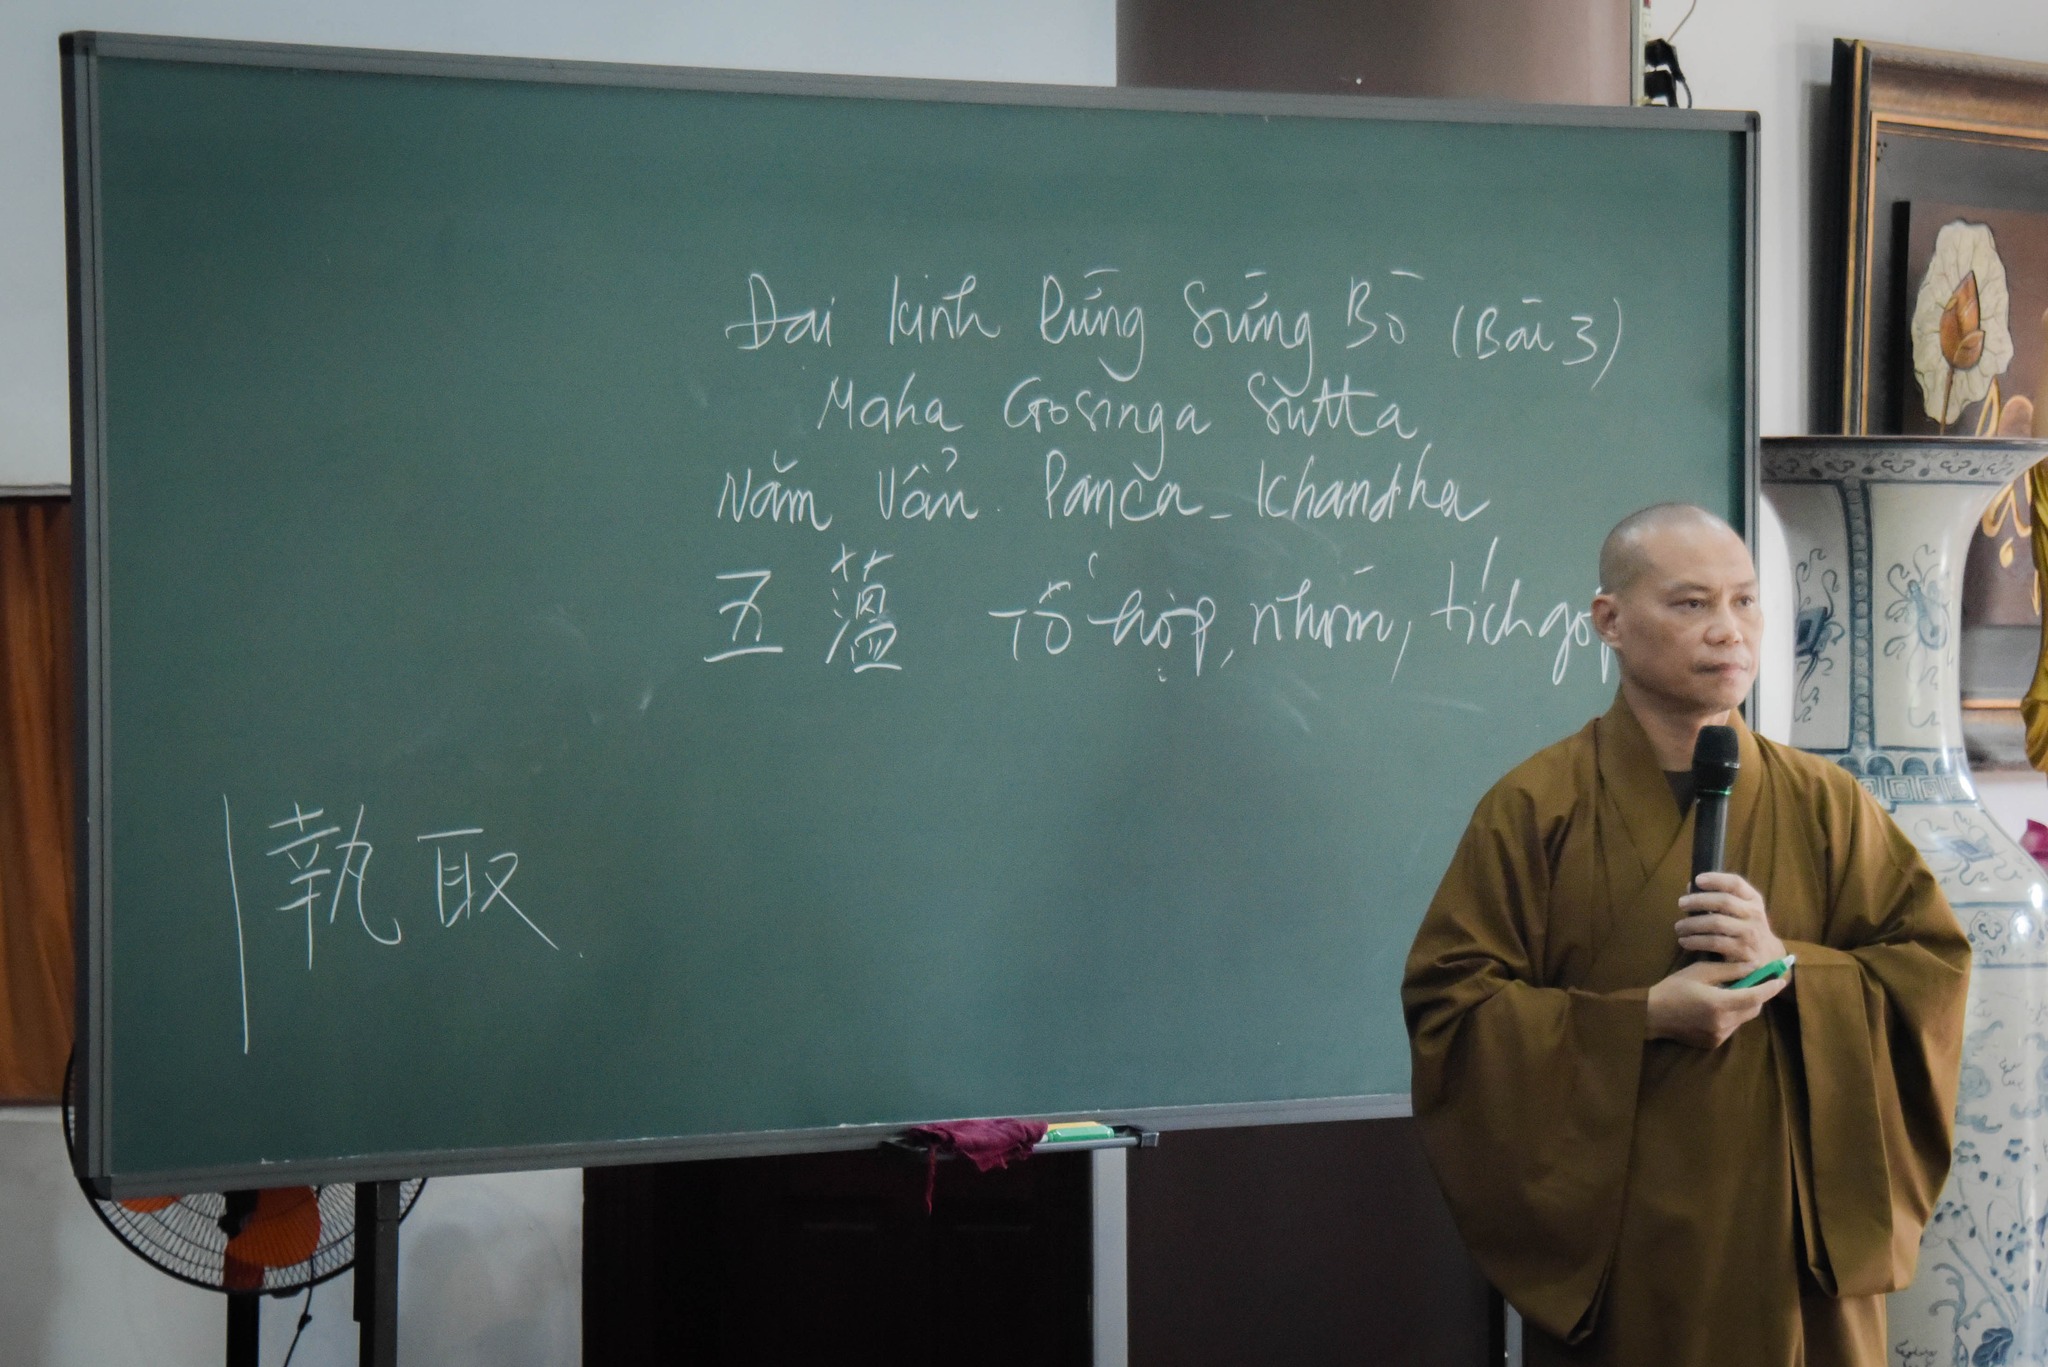 Đại kinh Rừng Sừng Bò (Bài 3)
Maha Gosinga Sutta
Năm Vẩn. Panca - Khandha
五蘊 Tổ hợp, nhóm, tích gop
執取